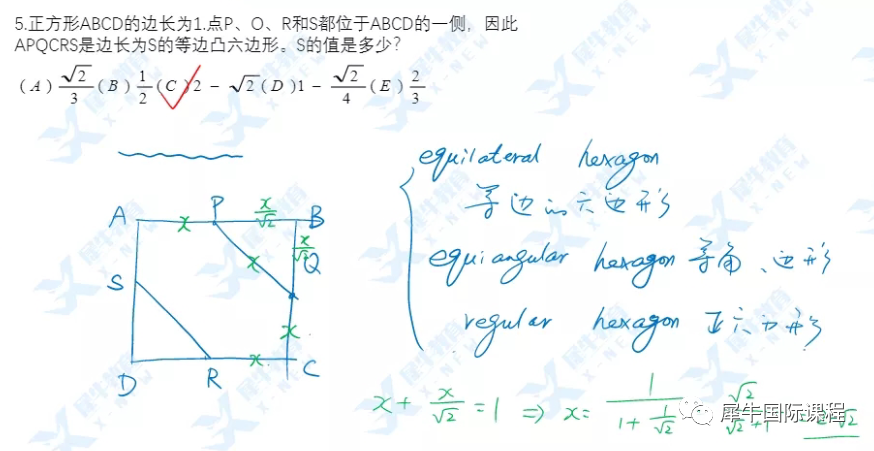 5.正方形ABCD的边长为1.点P、O、R和S都位于ABCD的一侧，因此
APQCRS是边长为S的等边凸六边形。S的值是多少？
(A) √2/3 (B) 1/2 (C) 2 - √2 (D) 1 - √2/4 (E) 2/3
equilateral hexagon
等边的六边形
equiangular hexagon 等角六边形
regular hexagon 正六边形
A x P x/√2 B
x/√2
S x Q
x
D R x C
x + x/√2 = 1 ⇒ x = 1/(1 + 1/√2) √2/(√2+1)
犀牛国际课程
犀牛教育
X-NEW